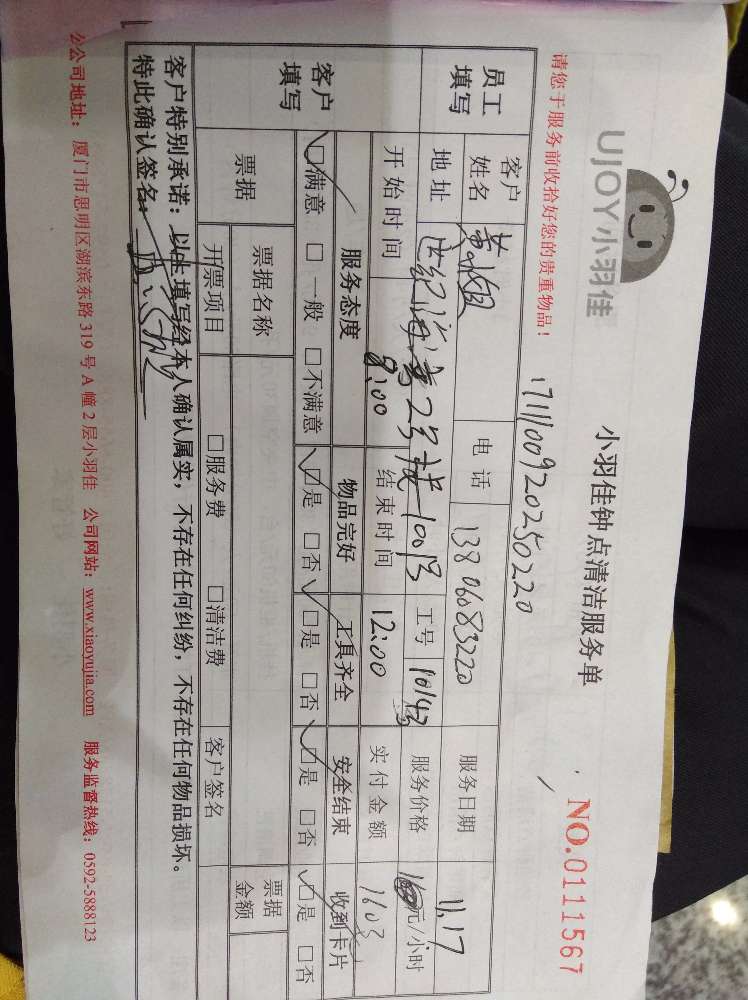 UJOY小羽佳
小羽佳钟点清洁服务单
NO.0111567
请您于服务前收拾好您的贵重物品！
17111009202502 20
员工填写
客户姓名 电话 13806083220 服务日期 11.17
地址 世纪海湾23号楼1001 工号 10143 服务价格 元/小时
开始时间 9:00 结束时间 12:00 实付金额 1603
客户填写
服务态度 物品完好 工具齐全 安全结束 收到卡片
☑满意 □一般 □不满意 ☑是 □否 ☑是 □否 ☑是 □否 ☑是 □否
票据 票据名称 票据金额
开票项目 □服务费 □清洁费 客户签名
客户特别承诺：以上填写经本人确认属实，不存在任何纠纷，不存在任何物品损坏。
特此确认签名：
公司地址：厦门市思明区湖滨东路 319 号 A 幢 2 层小羽佳 公司网站：www.xiaoyujia.com 服务监督热线：0592-5888123